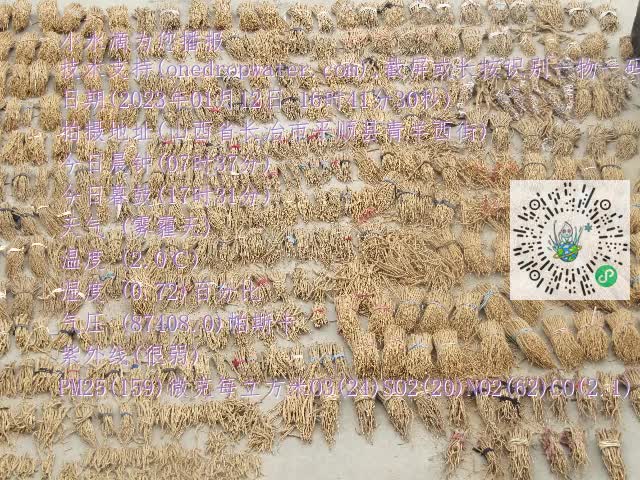 小水滴为您播报
技术支持(onedropwater.com),截屏或长按识别一物一码
日期(2023年01月12日 16时11分30秒)
拍摄地址(山西省长治市平顺县青羊西街)
今日晨钟(07时37分)
今日暮鼓(17时31分)
天气 (雾霾天)
温度 (2.0℃)
湿度 (0.72)百分比
气压 (87408.0)帕斯卡
紫外线(很弱)
PM25(159)微克每立方米O3(24)SO2(20)NO2(62)CO(2.1)